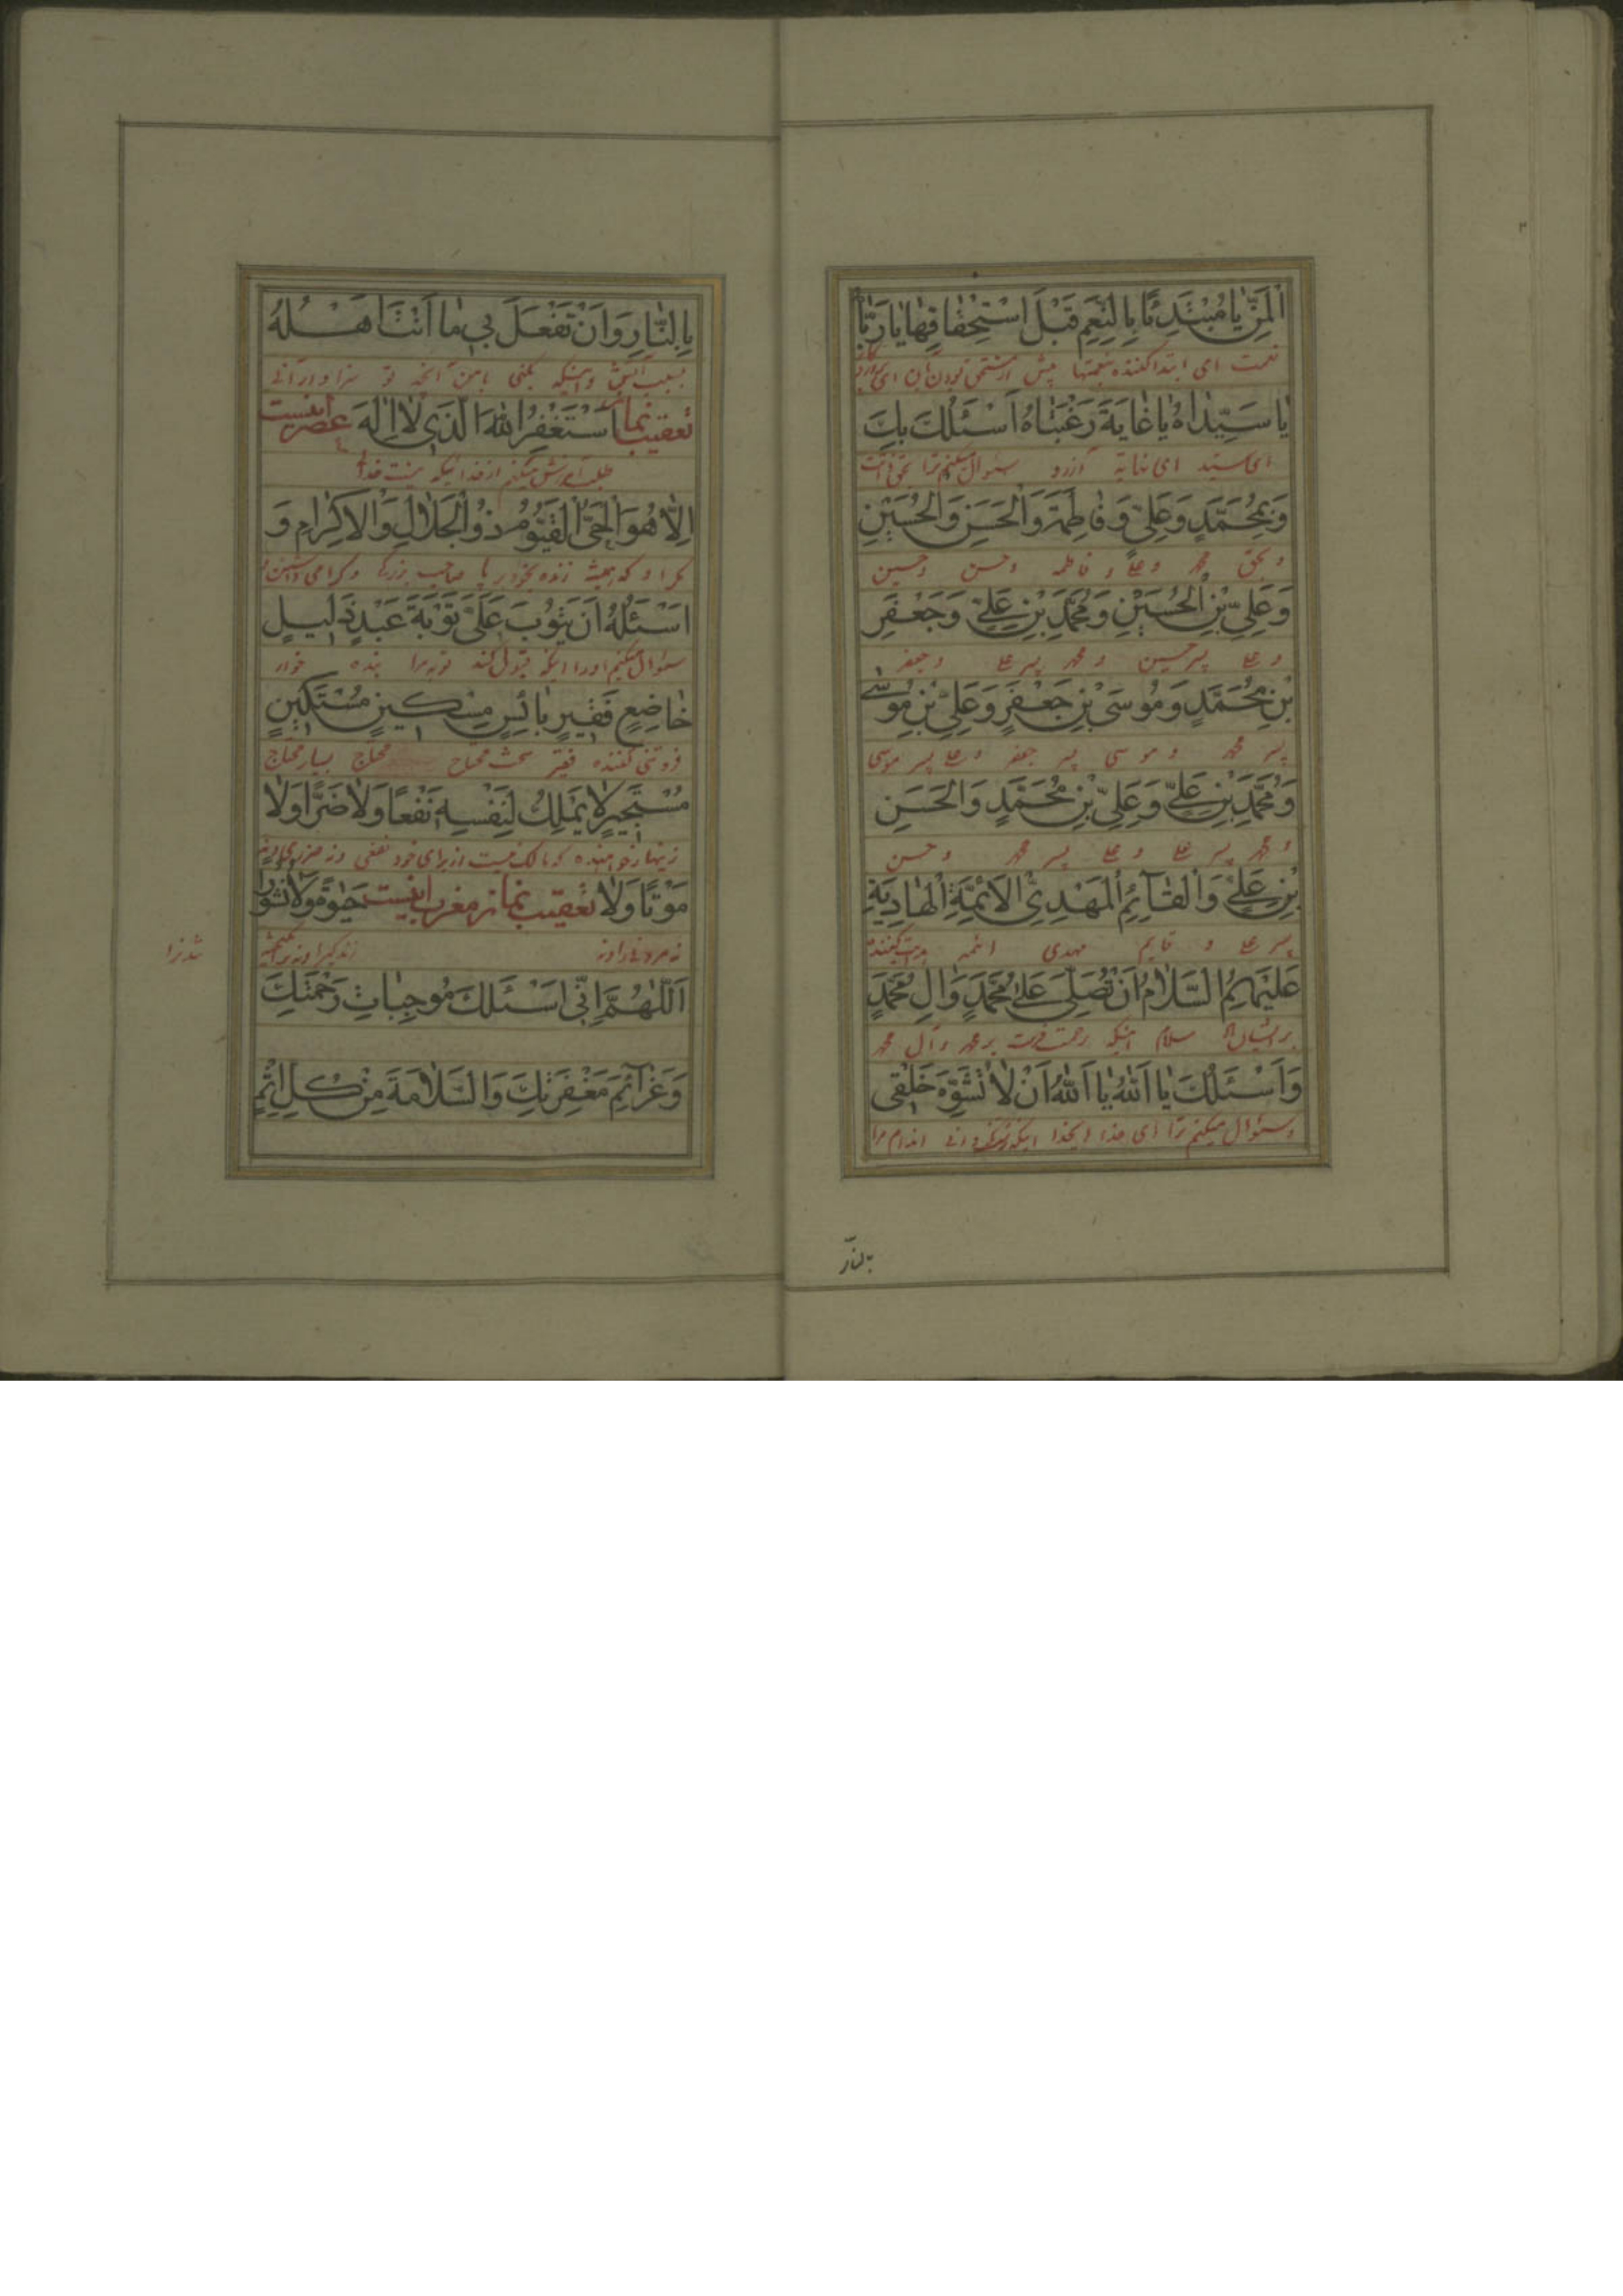 الْمَنِّ يَا مُبْتَدِئًا بِالنِّعَمِ قَبْلَ اسْتِحْقَاقِهَا يَا رَبَّاهُ
نعمت ای ابتدا کننده بنعمتها پیش از مستحق بودن آن ای
يَا سَيِّدَاهُ يَا غَايَةَ رَغْبَتَاهُ اَسْئَلُكَ بِكَ
ای سید ای نهایة آرزو سئوال میکنم ترا بحق ذاتت
وَبِمُحَمَّدٍ وَعَلِيٍّ وَفَاطِمَةَ وَالْحَسَنِ وَالْحُسَيْنِ
و بحق محمد و علی و فاطمه و حسن و حسین
وَعَلِيِّ بْنِ الْحُسَيْنِ وَمُحَمَّدِ بْنِ عَلِيٍّ وَجَعْفَرِ
و علی پسر حسین و محمد پسر علی و جعفر
بْنِ مُحَمَّدٍ وَمُوسَى بْنِ جَعْفَرٍ وَعَلِيِّ بْنِ مُوسٰى
پسر محمد و موسی پسر جعفر و علی پسر موسی
وَمُحَمَّدِ بْنِ عَلِيٍّ وَعَلِيِّ بْنِ مُحَمَّدٍ وَالْحَسَنِ
و محمد پسر علی و علی پسر محمد و حسن
بْنِ عَلِيٍّ وَالْقَآئِمِ الْمَهْدِيِّ الْاَئِمَّةِ الْهَادِيَةِ
پسر علی و قایم مهدی ائمه هدایت کننده
عَلَيْهِمُ السَّلَامُ اَنْ تُصَلِّيَ عَلٰى مُحَمَّدٍ وَاٰلِ مُحَمَّدٍ
بر ایشان سلام اینکه رحمت فرست بر محمد و آل محمد
وَاَسْئَلُكَ يَا اَللّٰهُ يَا اَللّٰهُ اَنْ لَا تُشَوِّهَ خَلْقِي
و سئوال میکنم ترا ای خدا ایخدا اینکه اندام مرا
بالنار
بِالنَّارِ وَاَنْ تَفْعَلَ بِي مَا اَنْتَ اَهْلُهُ
بسبب آتش و اینکه بکنی با من آنچه تو سزاوار آنی
تعقیب نماز عصر اینست اَسْتَغْفِرُ اللّٰهَ الَّذِي لَا اِلٰهَ
طلب آمرزش میکنم از خدا نیکه نیست خدائی
اِلَّا هُوَ الْحَيُّ الْقَيُّومُ ذُو الْجَلَالِ وَالْاِكْرَامِ وَ
مگر او که همیشه زنده صاحب بزرگی و گرامی داشتن
اَسْئَلُهُ اَنْ يَتُوبَ عَلَيَّ تَوْبَةَ عَبْدٍ ذَلِيلٍ
سئوال میکنم او را اینکه قبول کند توبه مرا بنده خوار
خَاضِعٍ فَقِيرٍ بَائِسٍ مِسْكِينٍ مُسْتَكِينٍ
فروتنی کننده فقیر سخت محتاج محتاج بسیار محتاج
مُسْتَجِيرٍ لَا يَمْلِكُ لِنَفْسِهِ نَفْعًا وَلَا ضَرًّا وَلَا
زینهار خواهنده که مالک نیست از برای خود نفعی و نه ضرری و نه
مَوْتًا وَلَا تعقیب نماز مغرب اینست حَيٰوةً وَلَا نُشُورًا
اَللّٰهُمَّ اِنِّي اَسْئَلُكَ مُوجِبَاتِ رَحْمَتِكَ
وَعَزَآئِمَ مَغْفِرَتِكَ وَالسَّلَامَةَ مِنْ كُلِّ اِثْمٍ